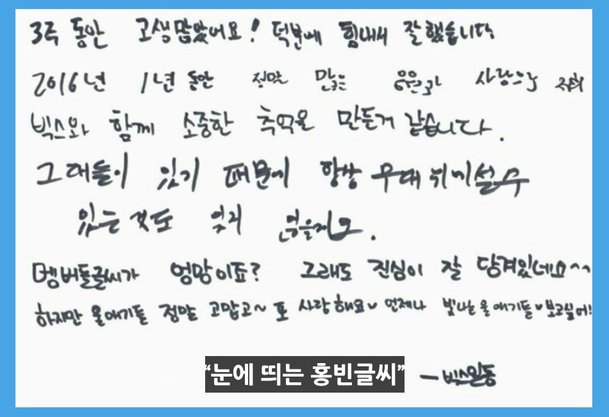 3주 동안 고생많았어요! 덕분에 힘내서 잘했습니다
2016년 1년동안 정말 많은 응원과 사랑으로 저희
빅스와 함께 소중한 추억을 만든거 같습니다.
그대들이 있기 때문에 항상 무대위에설수
있는 것도 잊지 않을게요.
멤버들글씨가 엉망이죠? 그래도 진심이 잘 담겨있네요~~
하지만 울애기들 정말 고맙고~ 또 사랑해요♥ 언제나 빛나는 울애기들♥보고싶어!
“눈에 띄는 홍빈글씨”
-빅스일동